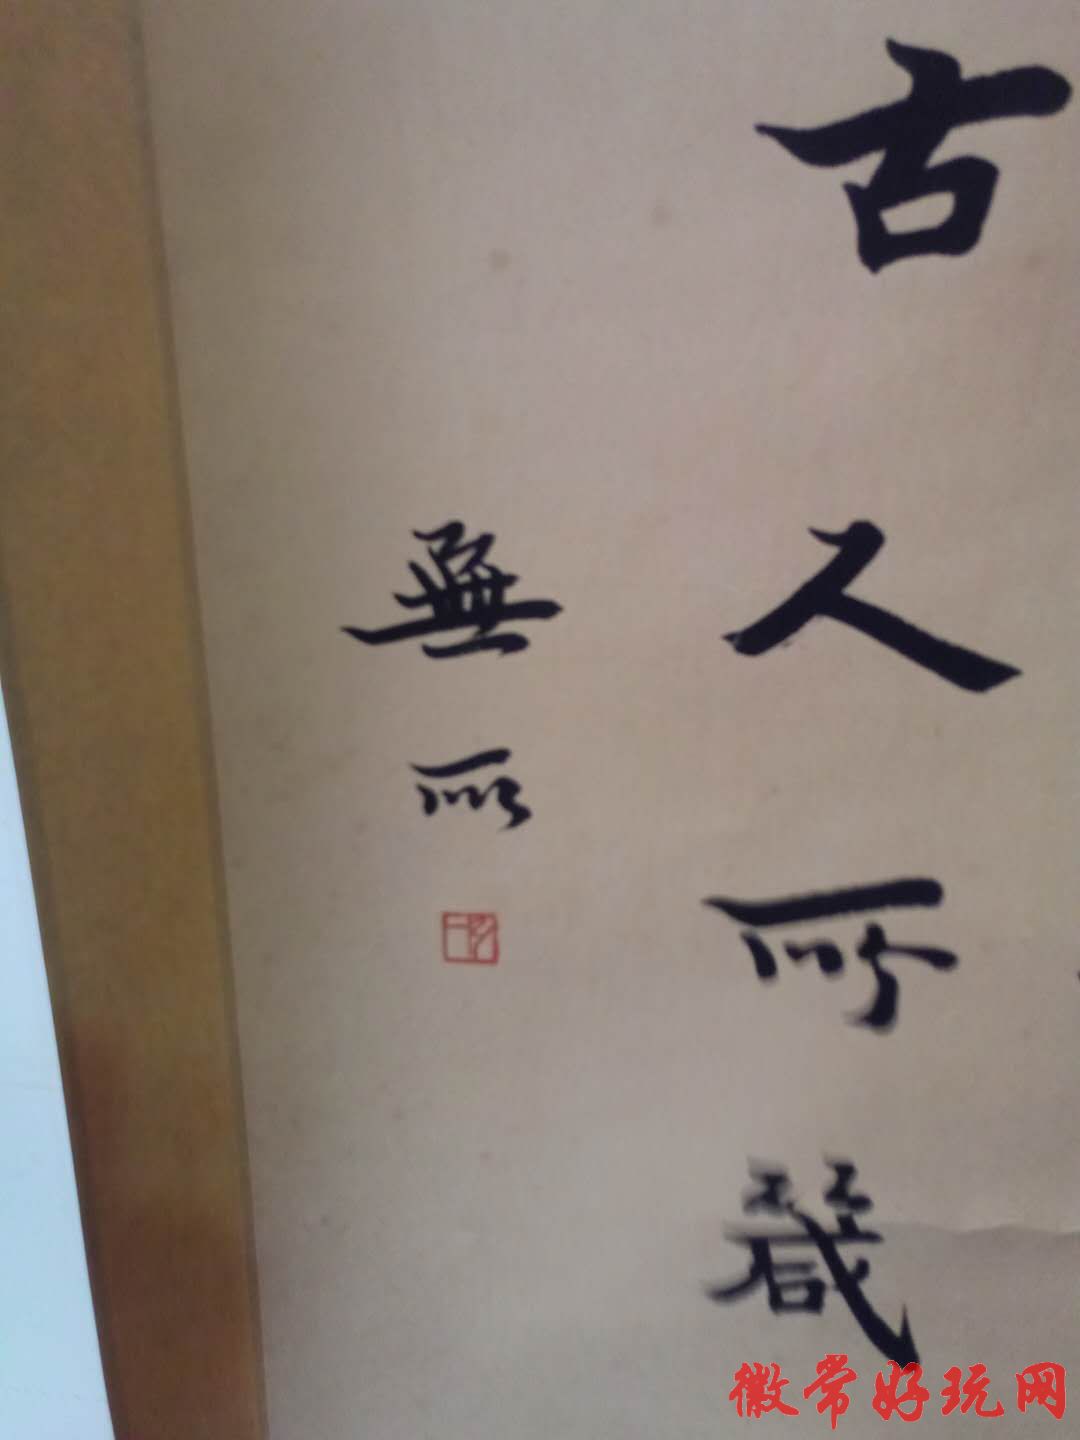 古人所箴
無所
徽常好玩网